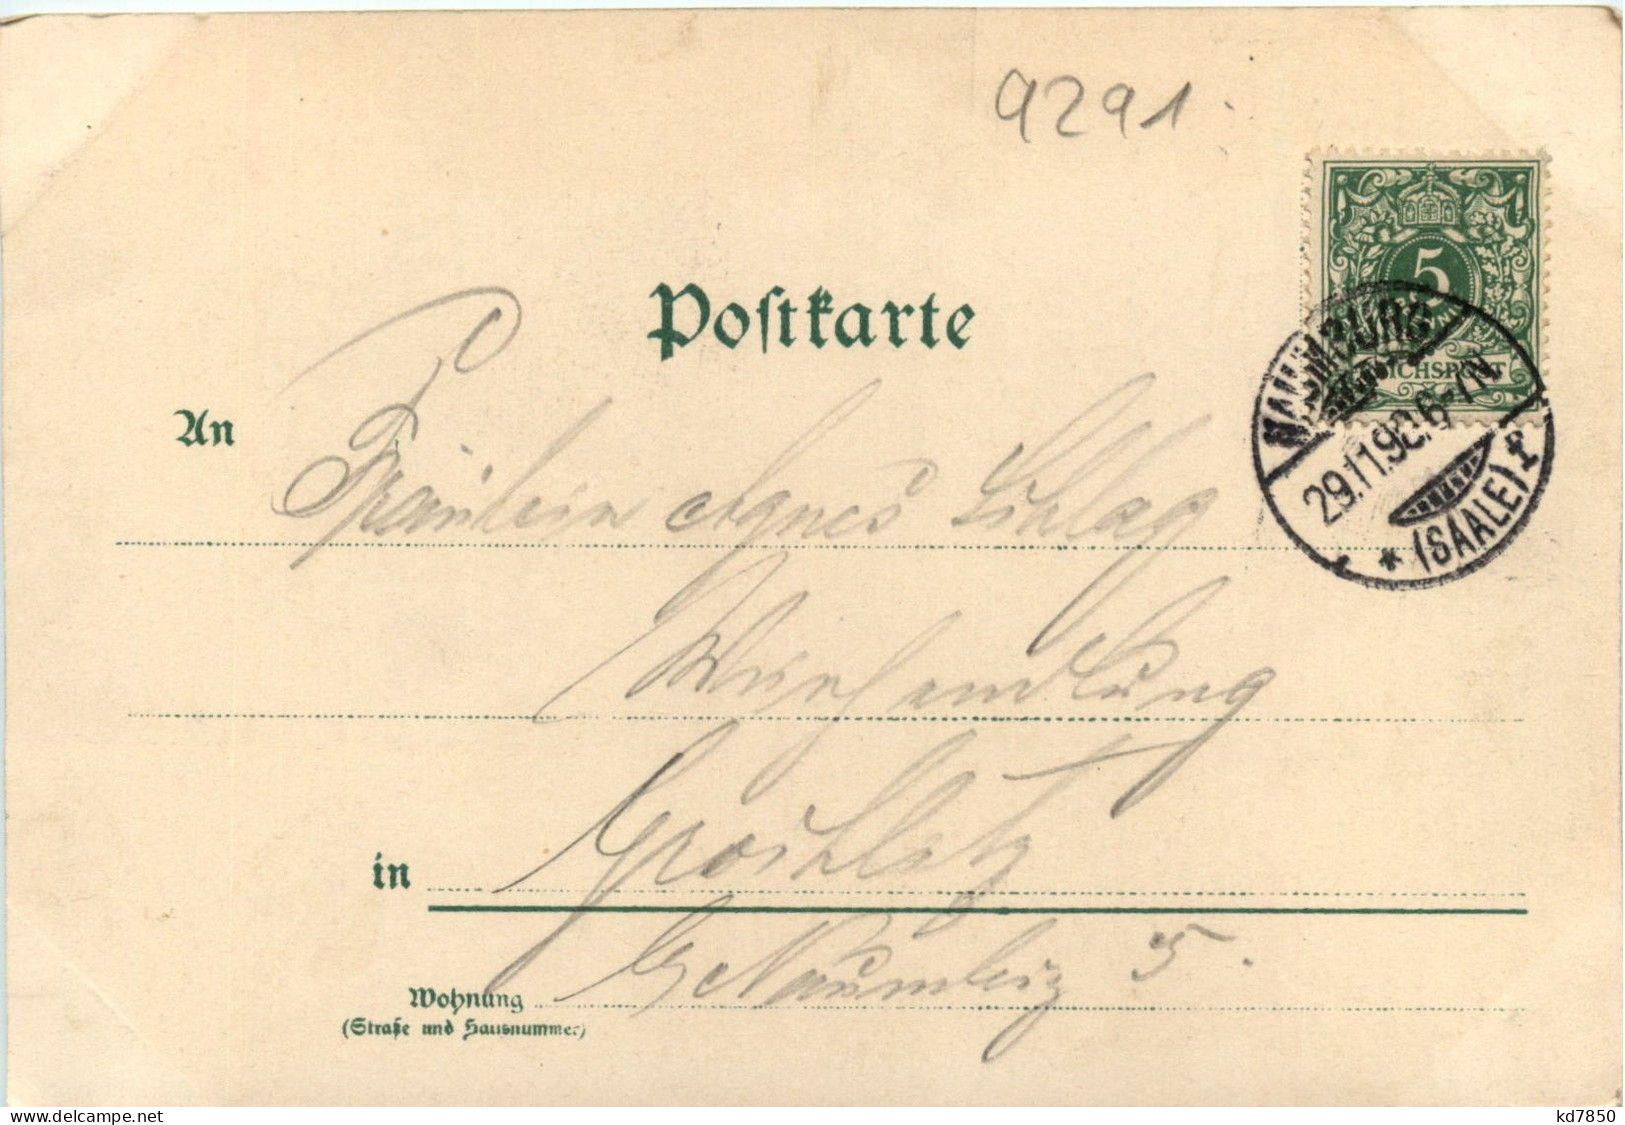 9291.
5
REICHSPOST
NAUMBURG
29.11.98.6-7N.
* (SAALE) 1
Postkarte
An Fräulein Agnes Schlag
Weinhandlung
in
Wohnung
(Straße und Hausnummer)
5.
www.delcampe.net
kd7850